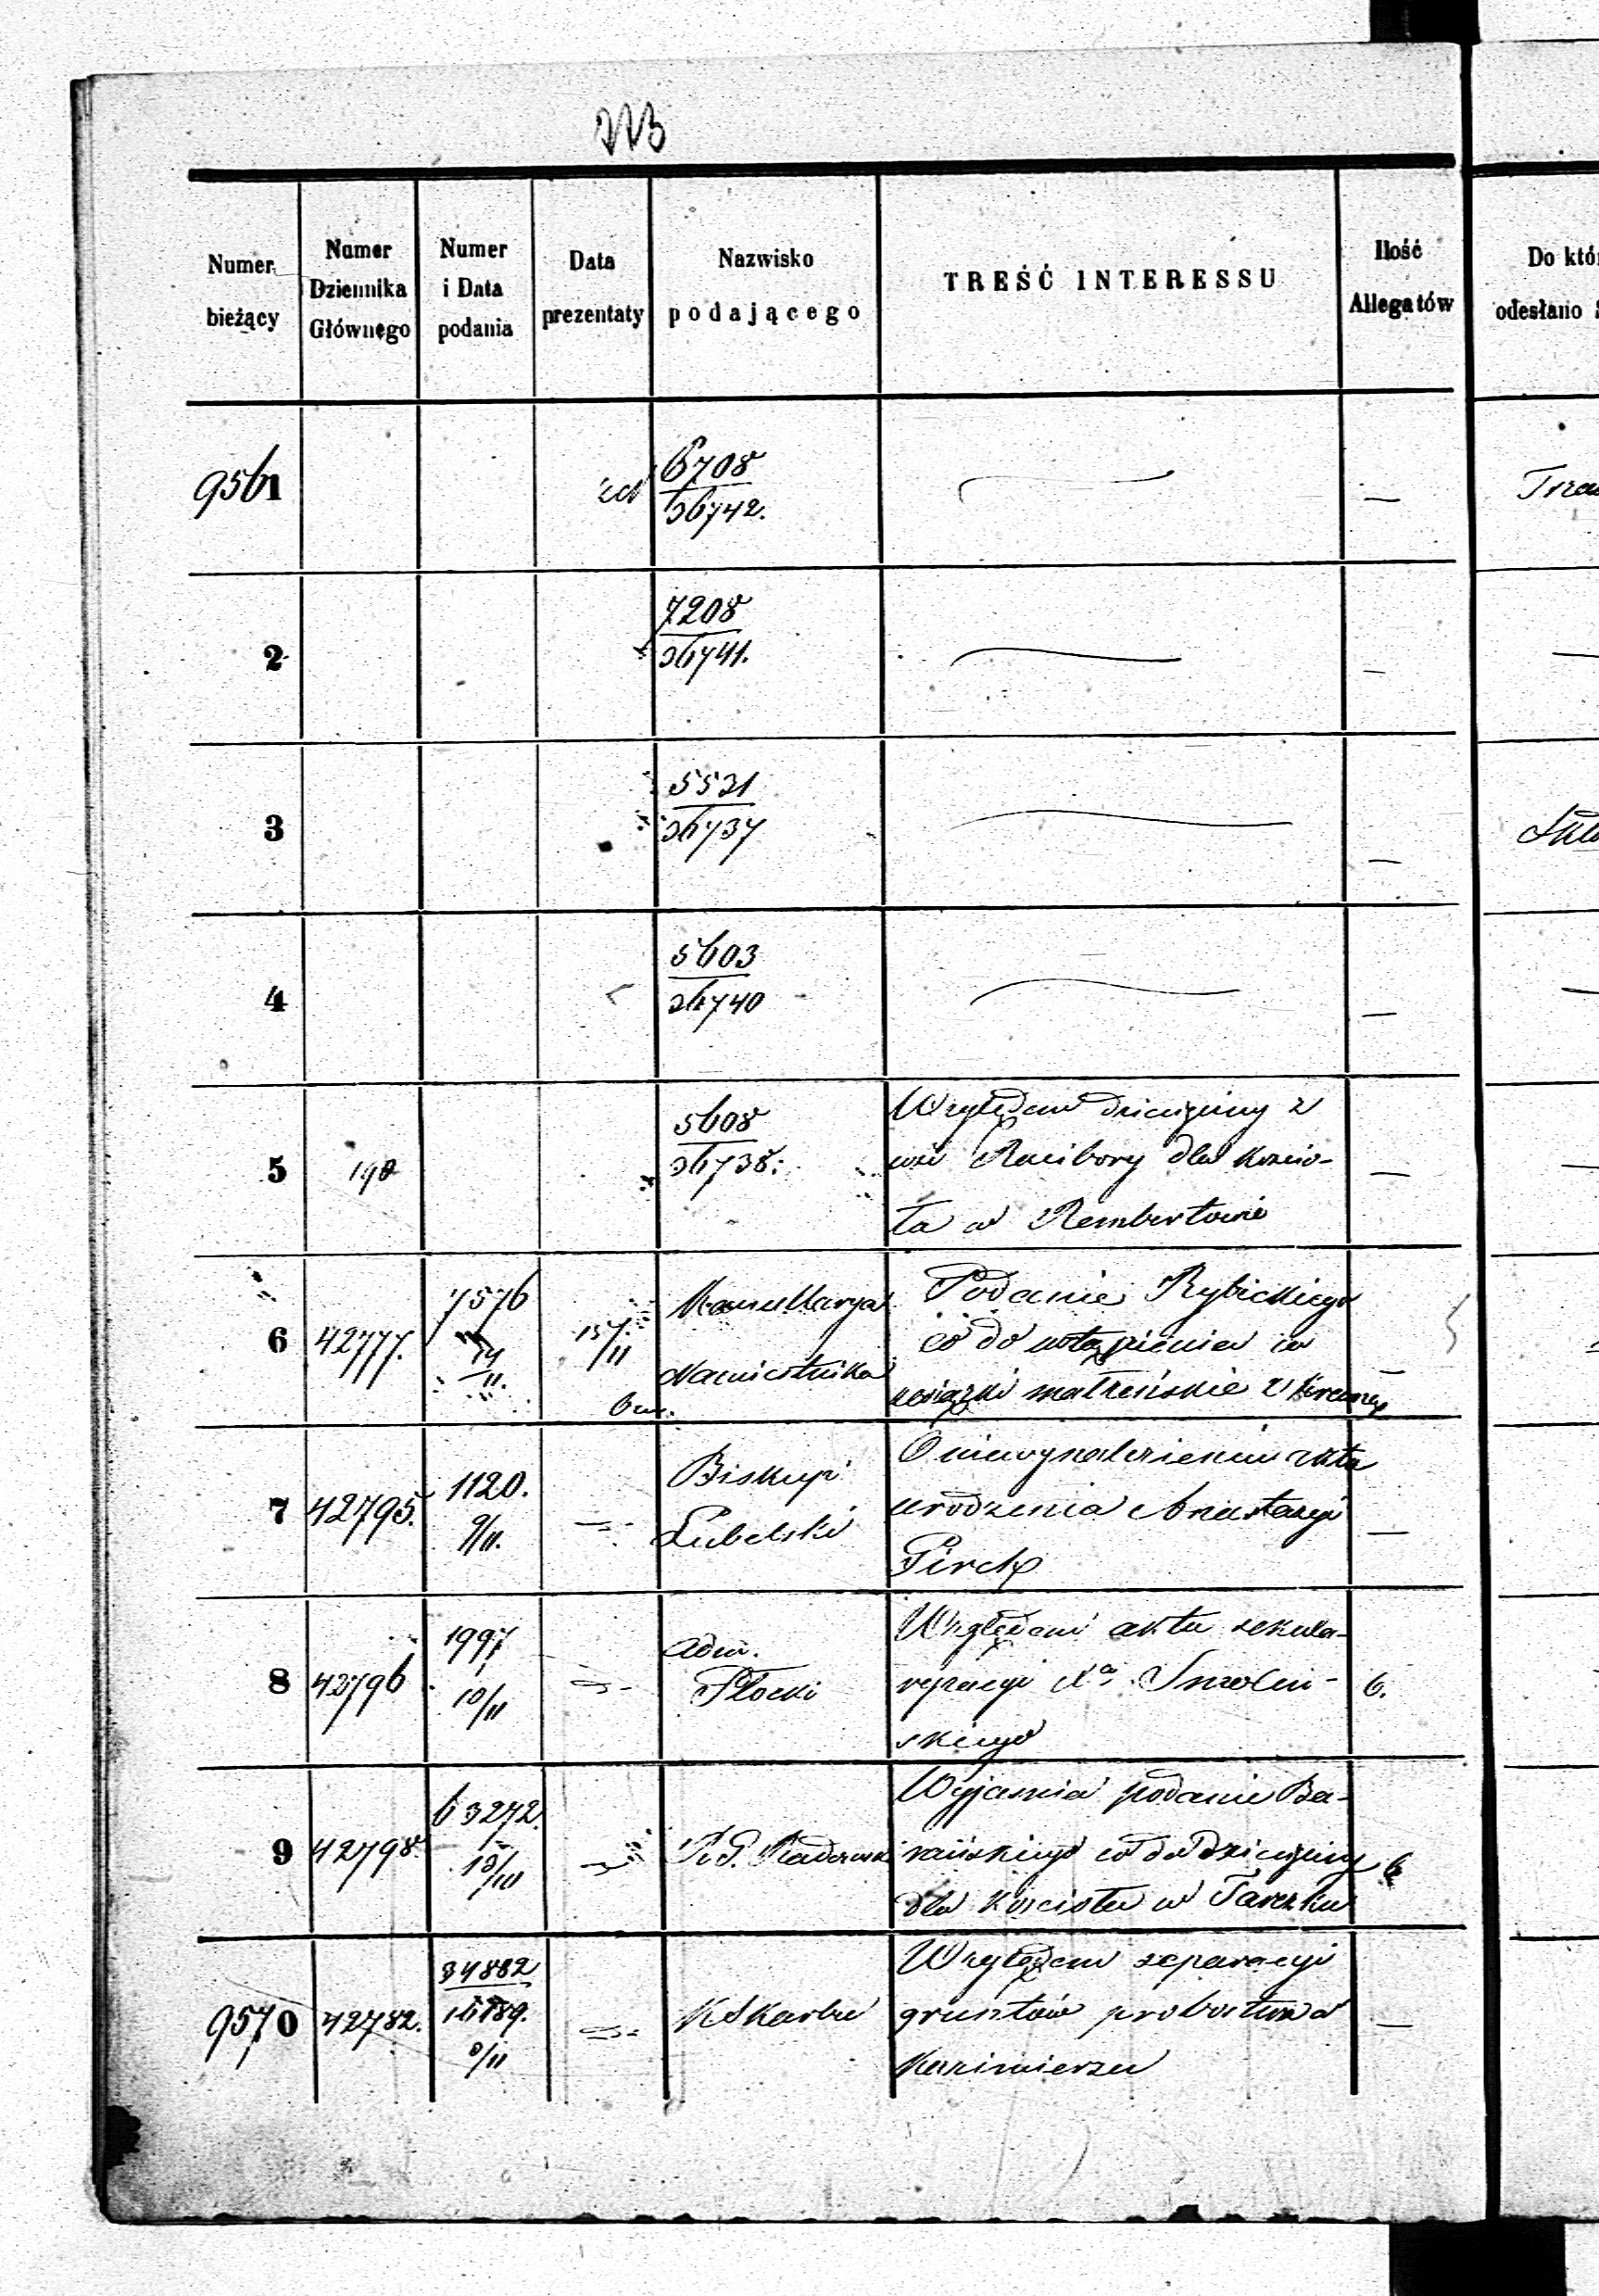 Numer bieżący
Numer Dziennika Głównego
Numer i Data podania
Data prezentaty
Nazwisko podającego
TREŚĆ INTERESSU
Ilość Allegatów
Do któr
odesłano
9561
6708
36742.
—
2
7208
36741.
—
3
5531
36737
—
4
5603
36740
—
5
5608
36738.
Względem dziesięciny z
wsi Racibory dla kościo-
ła w Rembertowie
—
6
42777.
7576
14/11.
15/11
Kancellarya
Namiestnika
Podanie Rybickiego
co do wstąpienia w
związki małżeńskie z
—
7
42795.
1120.
9/11.
Biskup
Lubelski
O niewynalezieniu aktu
urodzenia Anastazyi
Pirch
—
8
42796
1997
10/11
Adm.
Płocki
Względem aktu sekula-
ryzacyi Xa Smoleń-
skiego
6.
9
42798
63272
10/11
R.G. Radomski
Wyjaśnia podanie Ba-
rańskiego co do dziesięciny
dla Kościoła w Tarczku
6
9570
42782.
34882
9/11
K Skarbu
Względem separacyi
gruntów probostwa
Kazimierzu
—